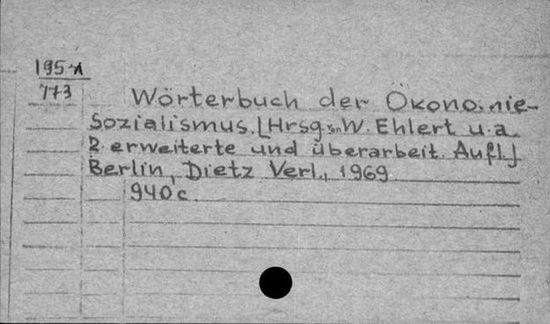 1951
773
Wörterbuch der Ökonomie-
Sozialismus. [Hrsg. v. W. Ehlert u. a.
2. erweiterte und überarbeit. Aufl.]
Berlin, Dietz Verl., 1969
940 c.